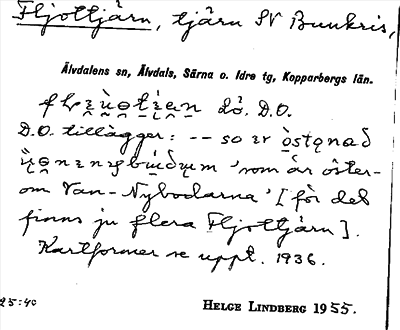 Fljottjärn, tjärn SV Bunkris,
Älvdalens sn, Älvdals, Särna o. Idre tg, Kopparbergs län.
då. D.O.
D.O. tillägger: -- so er
'som är öster-
om Van-Nybodarna' [för det
finns ju flera Fljottjärn].
Kartformer se uppt. 1936.
25:40
HELGE LINDBERG 1955.